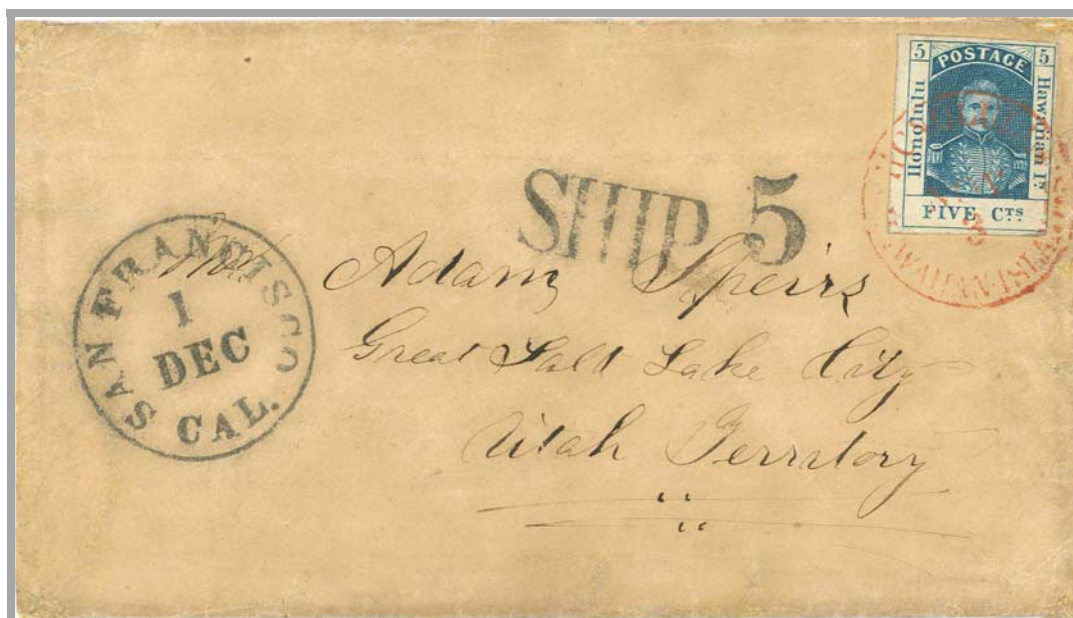 5 POSTAGE 5
Honolulu
Hawaiian Is.
FIVE CTS
SHIP 5
SAN FRANCISCO
1
DEC
CAL.
Adam Speirs
Great Salt Lake City
Utah Territory